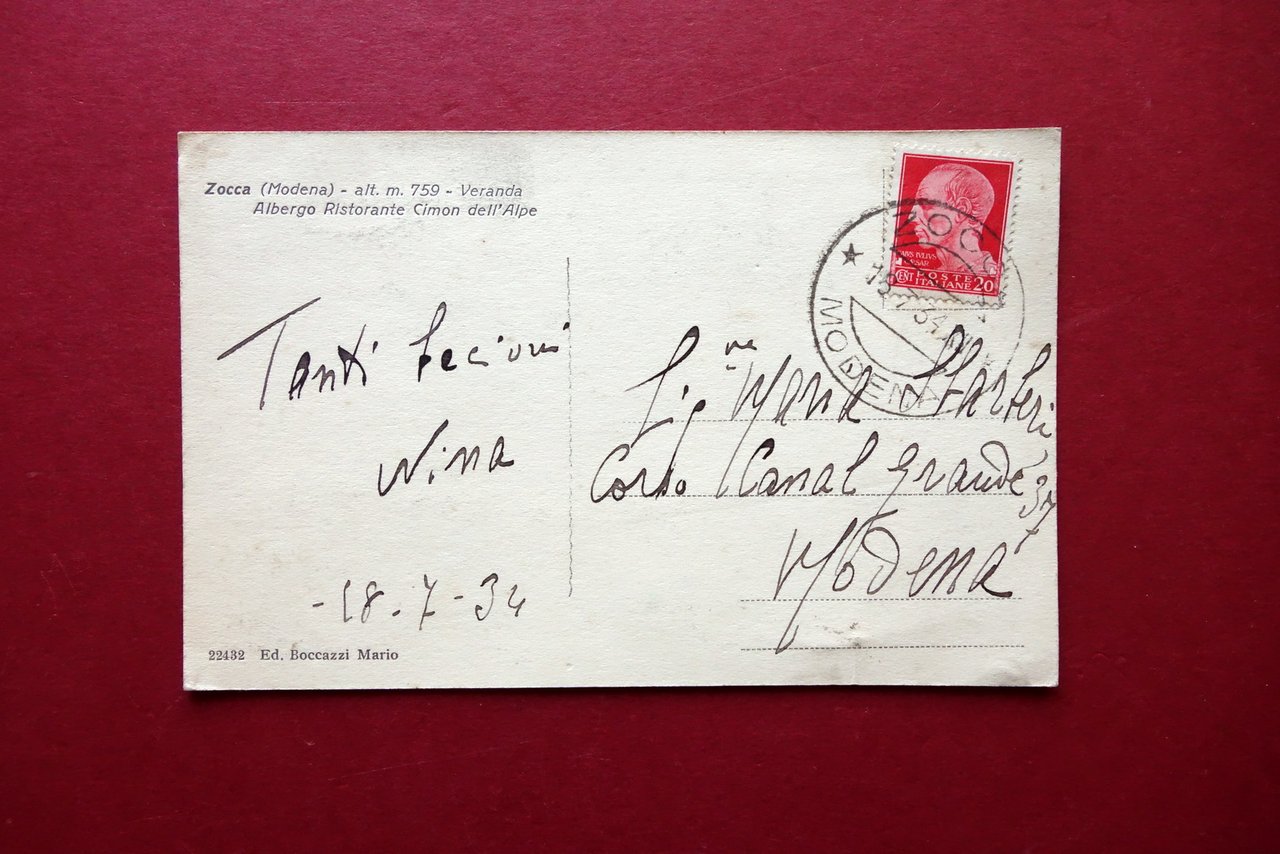 Zocca (Modena) - alt. m. 759 - Veranda
Albergo Ristorante Cimon dell'Alpe
Tanti
Nina
-18-7-34
22432 Ed. Boccazzi Mario
IVLIVS
CENT POSTE
ITALIANE 20
ZOCCA
MODENA
Sig.na Maria
Corso Canal Grande 37
Modena